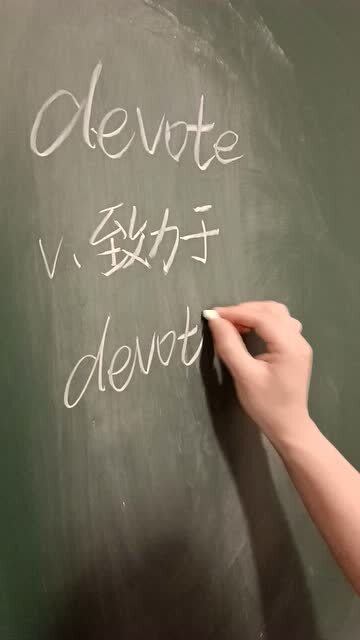 devote
v. 致力于
devot